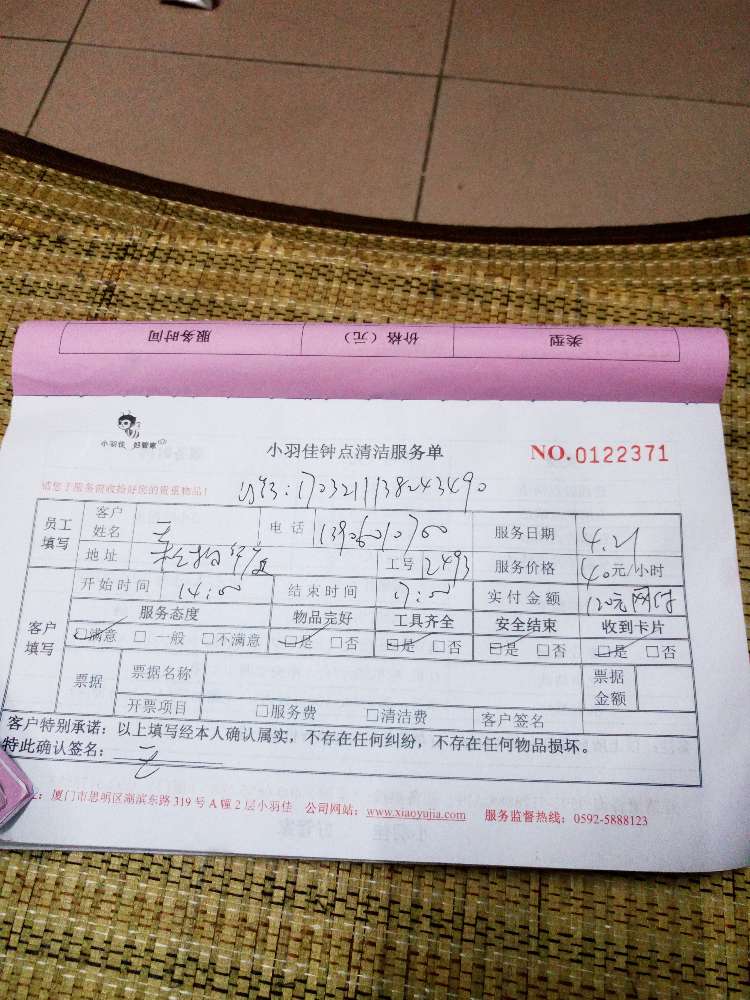 类型 价格（元） 服务时间
小羽佳 好管家
小羽佳钟点清洁服务单 NO.0122371
请您于服务前收拾好您的贵重物品！
员工填写 客户姓名 王 电话 服务日期 4.21
地址 工号 2493 服务价格 40元/小时
客户填写 开始时间 14:00 结束时间 17:00 实付金额 120元网付
服务态度 物品完好 工具齐全 安全结束 收到卡片
☑满意 □一般 □不满意 ☑是 □否 ☑是 □否 ☑是 □否 ☑是 □否
票据 票据名称 票据金额
开票项目 □服务费 □清洁费 客户签名
客户特别承诺：以上填写经本人确认属实，不存在任何纠纷，不存在任何物品损坏。
特此确认签名：王
厦门市思明区湖滨东路319号A幢2层小羽佳 公司网站：www.xiaoyujia.com 服务监督热线：0592-5888123